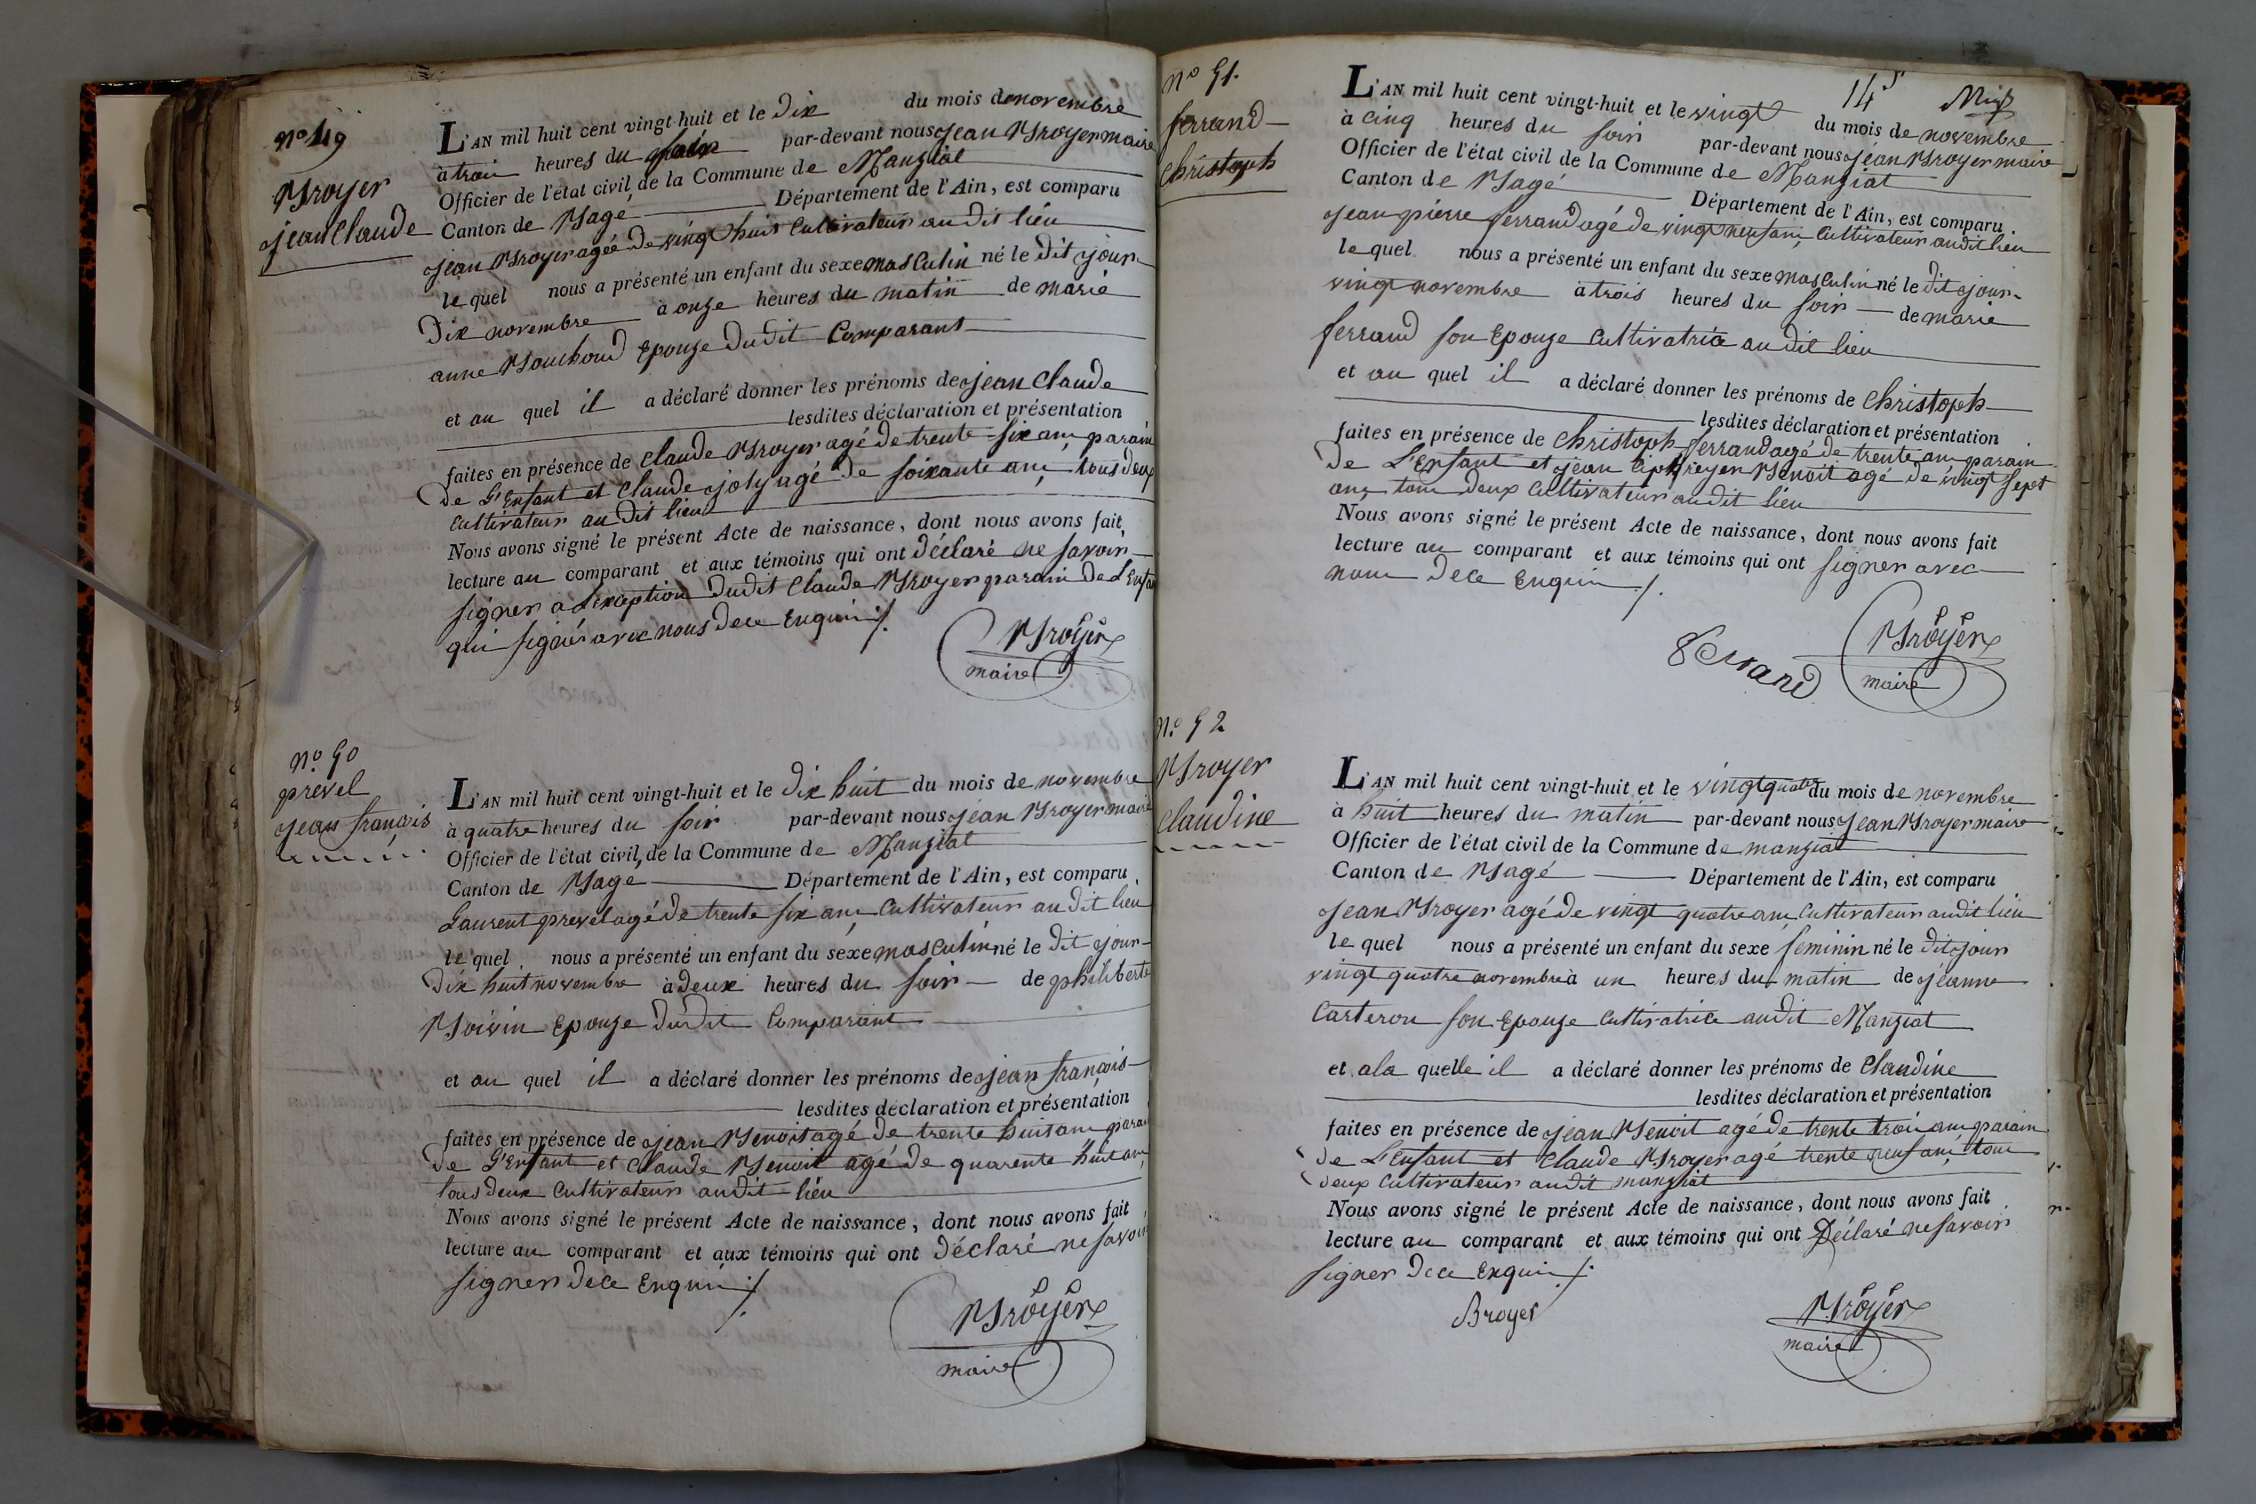 nº 49
Broyer
jean Claude
L'AN mil huit cent vingt-huit et le Dix du mois de novembre
à trois heures du soir par-devant nous jean Broyer maire
Officier de l'état civil de la Commune de Manziat
Canton de Bagé Département de l'Ain, est comparu
jean Broyer agée de vingt huit Cultivateur au dit lieu
le quel nous a présenté un enfant du sexe masculin né le dit jour
Dix novembre à onze heures du matin de marie
anne Bouchoud Epouze Du dit Comparant
et au quel il a déclaré donner les prénoms de jean Claude
lesdites déclaration et présentation
faites en présence de Claude Broyer agé de trente-six ans parain
De L'Enfant et Claude joly agé de soixante ans tous deux
Cultivateur au dit lieu
Nous avons signé le présent Acte de naissance, dont nous avons fait
lecture au comparant et aux témoins qui ont déclaré ne savoir
signer a L'exception dudit Claude Broyer parain de L'Enfan
qui signés avec nous de ce Enquis ./.
Broyer
maire
nº 50
prevel
jean françois
L'AN mil huit cent vingt-huit et le Dix huit du mois de novembre
à quatre heures du soir par-devant nous jean Broyer maire
Officier de l'état civil de la Commune de Manziat
Canton de Bagé Département de l'Ain, est comparu
Laurent prevel agé de trente six ans Cultivateur au dit lieu
le quel nous a présenté un enfant du sexe masculin né le dit jour
Dix huit novembre à deux heures du soir de philiberte
Boivin Epouze du dit Comparant
et au quel il a déclaré donner les prénoms de jean françois
lesdites déclaration et présentation
faites en présence de jean Benoit agé de trente huit ans parai
de L'Enfant et Claude Benoit agé de quarente huit ans
tous deux Cultivateur audit lieu
Nous avons signé le présent Acte de naissance, dont nous avons fait
lecture au comparant et aux témoins qui ont déclaré ne savoir
signer de ce Enquis ./.
Broyer
maire
14
nº 51.
ferrand
Christoph
L'AN mil huit cent vingt-huit et le vingt du mois de novembre
à cinq heures du soir par-devant nous jean Broyer maire
Officier de l'état civil de la Commune de Manziat
Canton de Bagé Département de l'Ain, est comparu
jean pierre ferrand agé de vingt neuf ans Cultivateur audit lieu
le quel nous a présenté un enfant du sexe masculin né le dit jour
vingt novembre à trois heures du soir de marie
ferrand son Epouze Cultivatrice au dit lieu
et au quel il a déclaré donner les prénoms de Christoph
lesdites déclaration et présentation
faites en présence de Christoph ferrand agé de trente ans parain
De L'Enfant et jean Benoit agé de vingt sept
ans tous deux Cultivateur au dit lieu
Nous avons signé le présent Acte de naissance, dont nous avons fait
lecture au comparant et aux témoins qui ont signer avec
nous de ce Enquis ./.
ferrand
Broyer
maire
nº 52
Broyer
Claudine
L'AN mil huit cent vingt-huit et le vingt quatre du mois de novembre
à huit heures du matin par-devant nous jean Broyer maire
Officier de l'état civil de la Commune de manziat
Canton de Bagé Département de l'Ain, est comparu
jean Broyer agé de vingt quatre ans Cultivateur audit lieu
le quel nous a présenté un enfant du sexe feminin né le dit jour
vingt quatre novembre à un heures du matin de jeanne
Carteron son Epouze Cultivatrice audit Manziat
et a la quelle il a déclaré donner les prénoms de Claudine
lesdites déclaration et présentation
faites en présence de jean Benoit agé de trente trois ans parain
de L'Enfant et Claude Broyer agé trente neuf ans tous
deux Cultivateur audit manziat
Nous avons signé le présent Acte de naissance, dont nous avons fait
lecture au comparant et aux témoins qui ont Déclaré ne savoir
signer de ce Enquis ./.
Broyer
Broyer
maire